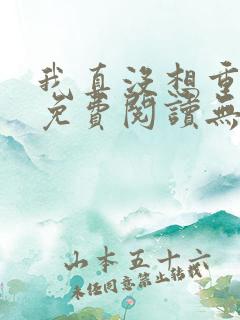 我真没想重
免費閱讀無
山本五十六
未经同意禁止转载